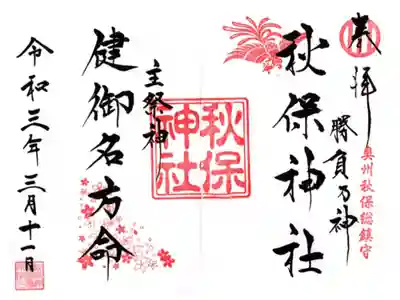 奉拝
勝負乃神
奥州秋保総鎮守
秋保神社
秋保
神社
主祭神
健御名方命
令和三年三月十一日